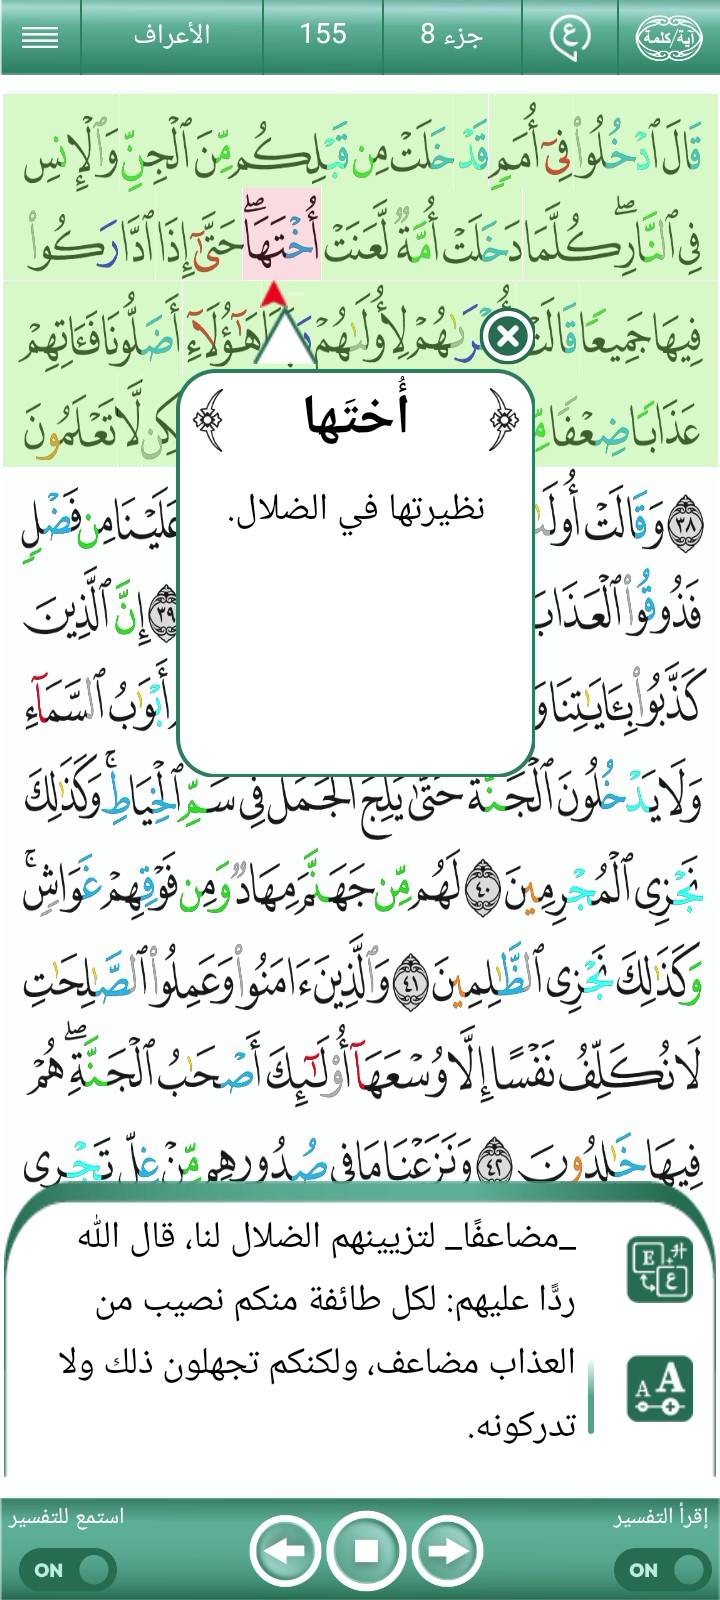 الأعراف 155 جزء 8 ع آية/كلمة
قَالَ ٱدْخُلُوا۟ فِىٓ أُمَمٍ قَدْ خَلَتْ مِن قَبْلِكُم مِّنَ ٱلْجِنِّ وَٱلْإِنسِ
فِى ٱلنَّارِ ۖ كُلَّمَا دَخَلَتْ أُمَّةٌ لَّعَنَتْ أُخْتَهَا ۖ حَتَّىٰٓ إِذَا ٱدَّارَكُوا۟
فِيهَا جَمِيعًا قَالَتْ لِأُولَىٰهُمْ هَٰٓؤُلَآءِ أَضَلُّونَا فَـَٔاتِهِمْ
عَذَابًا ضِعْفًا لَّا تَعْلَمُونَ
أُختَها
نظيرتها في الضلال.
٣٨ وَقَالَتْ عَلَيْنَا مِن فَضْلٍ
فَذُوقُوا۟ ٱلْعَذَابَ ٣٩ إِنَّ ٱلَّذِينَ
كَذَّبُوا۟ بِـَٔايَٰتِنَا أَبْوَٰبُ ٱلسَّمَآءِ
وَلَا يَدْخُلُونَ ٱلْجَنَّةَ حَتَّىٰ يَلِجَ ٱلْجَمَلُ فِى سَمِّ ٱلْخِيَاطِ ۚ وَكَذَٰلِكَ
نَجْزِى ٱلْمُجْرِمِينَ ٤٠ لَهُم مِّن جَهَنَّمَ مِهَادٌ وَمِن فَوْقِهِمْ غَوَاشٍ ۚ
وَكَذَٰلِكَ نَجْزِى ٱلظَّٰلِمِينَ ٤١ وَٱلَّذِينَ ءَامَنُوا۟ وَعَمِلُوا۟ ٱلصَّٰلِحَٰتِ
لَا نُكَلِّفُ نَفْسًا إِلَّا وُسْعَهَآ أُو۟لَٰٓئِكَ أَصْحَٰبُ ٱلْجَنَّةِ ۖ هُمْ
فِيهَا خَٰلِدُونَ ٤٢ وَنَزَعْنَا مَا فِى صُدُورِهِم مِّنْ غِلٍّ تَجْرِى
_مضاعفًا_ لتزيينهم الضلال لنا، قال الله
ردًّا عليهم: لكل طائفة منكم نصيب من
العذاب مضاعف، ولكنكم تجهلون ذلك ولا
تدركونه.
إقرأ التفسير
ON
استمع للتفسير
ON